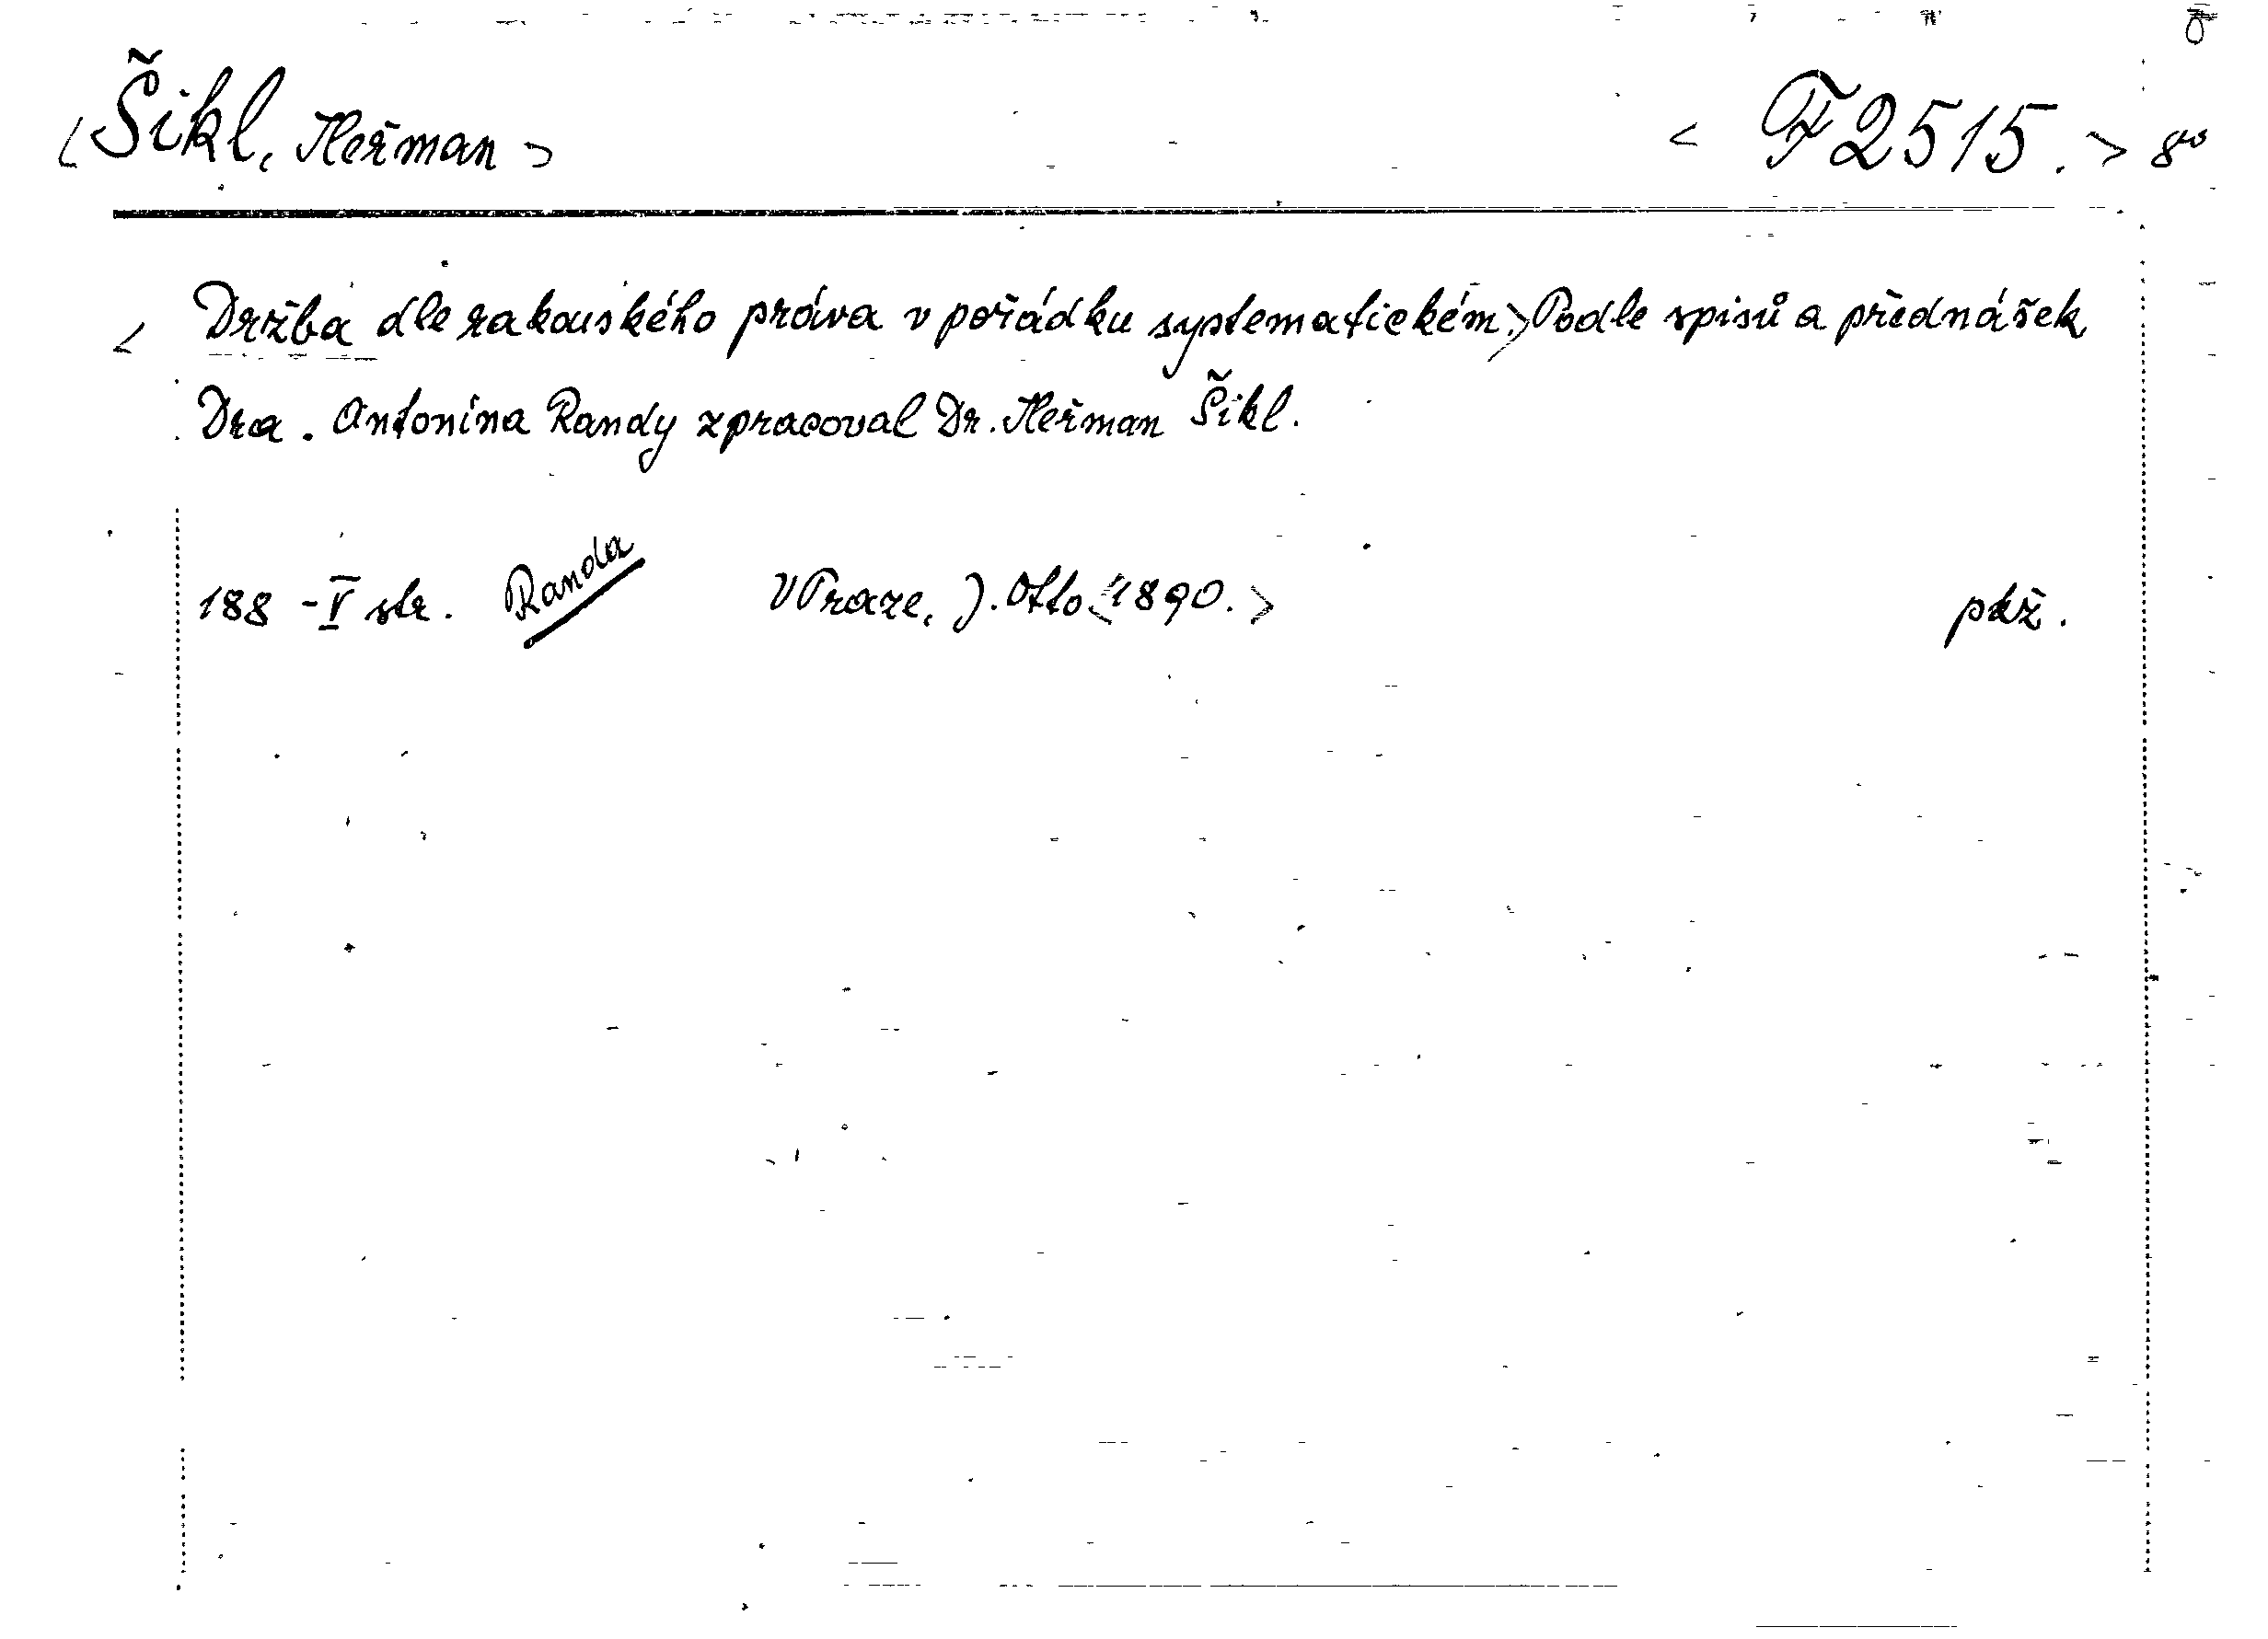 <Šikl, Heřman> <F 2515.> 8°
<Držba dle rakouského práva v pořádku systematickém.> Podle spisů a přednášek
Dra. Antonína Randy zpracoval Dr. Heřman Šikl.
188 - V str. Randa V Praze, J. Otto <1890.>